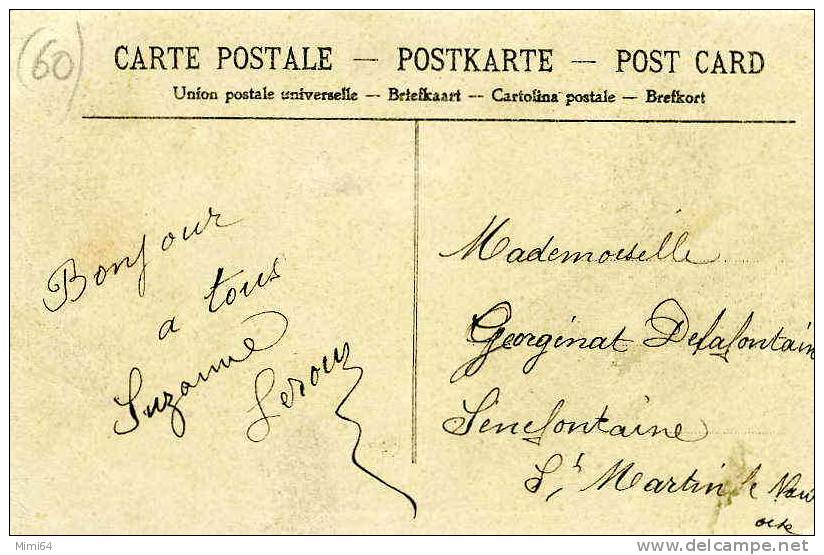 (60)
CARTE POSTALE — POSTKARTE — POST CARD
Union postale universelle — Briefkaart — Cartolina postale — Brefkort
Bonjour
a tous
Suzanne
Leroux
Mademoiselle
Georginat Delafontain
Senefontaine
St Martin le Nau
oise
Mimi64
delcampe.net